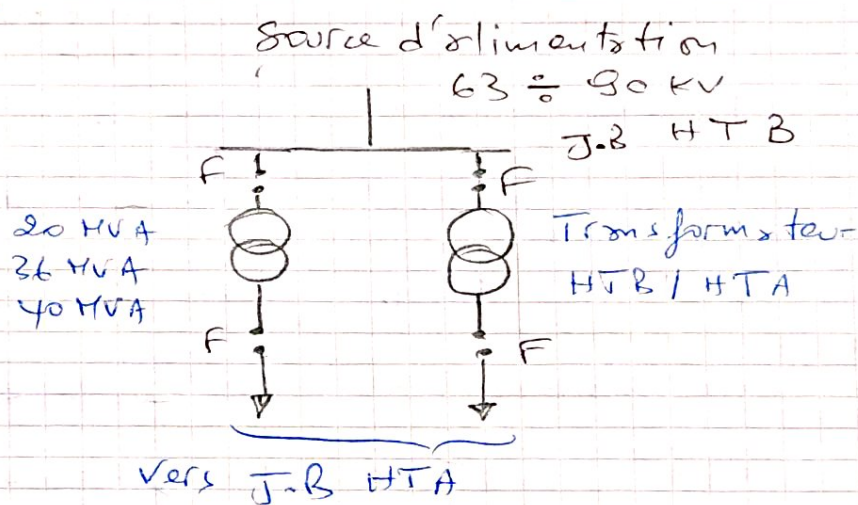 Source d'alimentation
63 ÷ 90 KV
J.B HTB
F
F
20 MVA
36 MVA
40 MVA
Transformateur
HTB / HTA
F
F
Vers J.B HTA